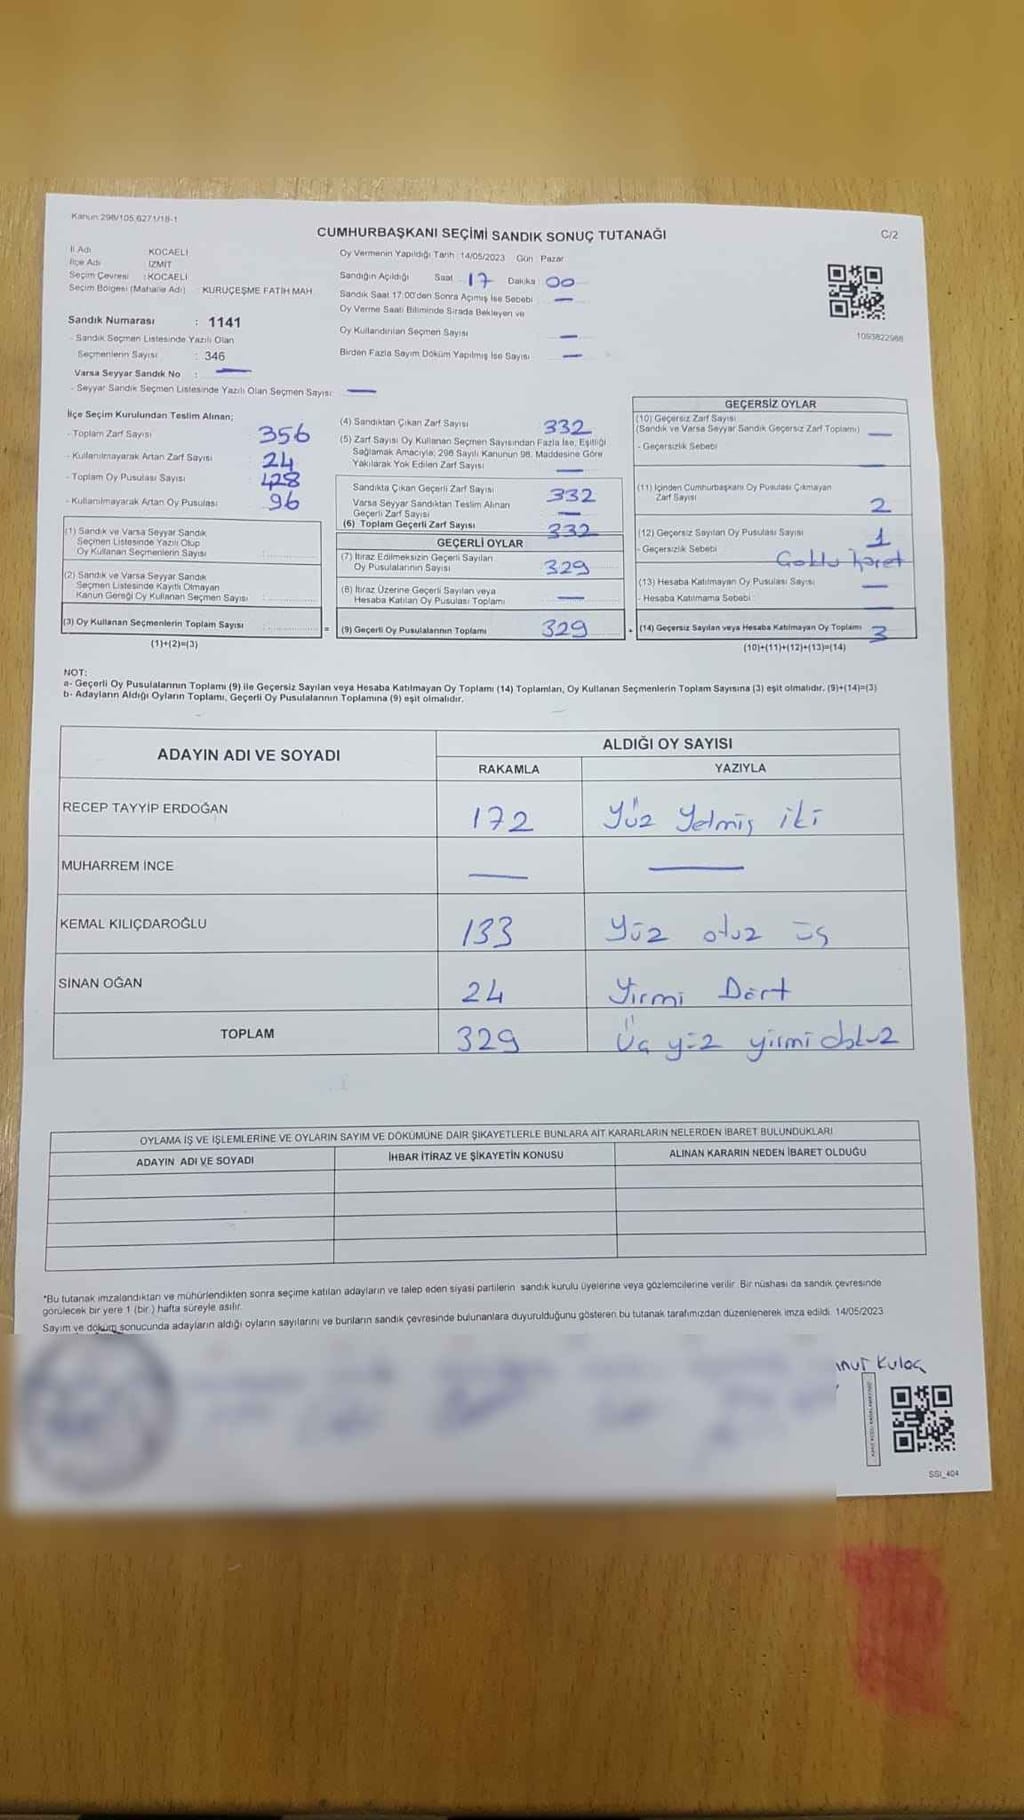 Kanun:298/105,6271/18-1
CUMHURBAŞKANI SEÇİMİ SANDIK SONUÇ TUTANAĞI
C/2
İl Adı KOCAELİ
İlçe Adı İZMİT
Seçim Çevresi : KOCAELİ
Seçim Bölgesi (Mahalle Adı) KURUÇEŞME FATİH MAH
Sandık Numarası : 1141
- Sandık Seçmen Listesinde Yazılı Olan
Seçmenlerin Sayısı : 346
Varsa Seyyar Sandık No : —
- Seyyar Sandık Seçmen Listesinde Yazılı Olan Seçmen Sayısı: —
Oy Vermenin Yapıldığı Tarih 14/05/2023 Gün Pazar
Sandığın Açıldığı Saat 17 Dakika 00
Sandık Saat 17:00'den Sonra Açımış İse Sebebi —
Oy Verme Saati Bitiminde Sırada Bekleyen ve
Oy Kullandırılan Seçmen Sayısı —
Birden Fazla Sayım Döküm Yapılmış İse Sayısı —
1093822988
İlçe Seçim Kurulundan Teslim Alınan;
- Toplam Zarf Sayısı 356
- Kullanılmayarak Artan Zarf Sayısı 24
- Toplam Oy Pusulası Sayısı 428
- Kullanılmayarak Artan Oy Pusulası 96
(1) Sandık ve Varsa Seyyar Sandık
Seçmen Listesinde Yazılı Olup
Oy Kullanan Seçmenlerin Sayısı
(2) Sandık ve Varsa Seyyar Sandık
Seçmen Listesinde Kayıtlı Olmayan
Kanun Gereği Oy Kullanan Seçmen Sayısı
(3) Oy Kullanan Seçmenlerin Toplam Sayısı
(1)+(2)=(3)
(4) Sandıktan Çıkan Zarf Sayısı 332
(5) Zarf Sayısı Oy Kullanan Seçmen Sayısından Fazla İse, Eşitliği
Sağlamak Amacıyla; 298 Sayılı Kanunun 98. Maddesine Göre
Yakılarak Yok Edilen Zarf Sayısı —
Sandıkta Çıkan Geçerli Zarf Sayısı 332
Varsa Seyyar Sandıktan Teslim Alınan
Geçerli Zarf Sayısı —
(6) Toplam Geçerli Zarf Sayısı 332
GEÇERLİ OYLAR
(7) İtiraz Edilmeksizin Geçerli Sayılan
Oy Pusulalarının Sayısı 329
(8) İtiraz Üzerine Geçerli Sayılan veya
Hesaba Katılan Oy Pusulası Toplamı —
= (9) Geçerli Oy Pusulalarının Toplamı 329
GEÇERSİZ OYLAR
(10) Geçersiz Zarf Sayısı
(Sandık ve Varsa Seyyar Sandık Geçersiz Zarf Toplamı) —
- Geçersizlik Sebebi —
(11) İçinden Cumhurbaşkanı Oy Pusulası Çıkmayan
Zarf Sayısı 2
(12) Geçersiz Sayılan Oy Pusulası Sayısı 1
- Geçersizlik Sebebi
(13) Hesaba Katılmayan Oy Pusulası Sayısı —
- Hesaba Katılmama Sebebi —
+ (14) Geçersiz Sayılan veya Hesaba Katılmayan Oy Toplamı 3
(10)+(11)+(12)+(13)=(14)
NOT:
a- Geçerli Oy Pusulalarının Toplamı (9) ile Geçersiz Sayılan veya Hesaba Katılmayan Oy Toplamı (14) Toplamları, Oy Kullanan Seçmenlerin Toplam Sayısına (3) eşit olmalıdır. (9)+(14)=(3)
b- Adayların Aldığı Oyların Toplamı, Geçerli Oy Pusulalarının Toplamına (9) eşit olmalıdır.
ADAYIN ADI VE SOYADI ALDIĞI OY SAYISI
RAKAMLA YAZIYLA
RECEP TAYYİP ERDOĞAN 172 Yüz Yetmiş iki
MUHARREM İNCE — —
KEMAL KILIÇDAROĞLU 133 Yüz otuz üç
SİNAN OĞAN 24 Yirmi Dört
TOPLAM 329 Üç yüz yirmi dokuz
OYLAMA İŞ VE İŞLEMLERİNE VE OYLARIN SAYIM VE DÖKÜMÜNE DAİR ŞİKAYETLERLE BUNLARA AİT KARARLARIN NELERDEN İBARET BULUNDUKLARI
ADAYIN ADI VE SOYADI İHBAR İTİRAZ VE ŞİKAYETİN KONUSU ALINAN KARARIN NEDEN İBARET OLDUĞU
*Bu tutanak imzalandıktan ve mühürlendikten sonra seçime katılan adayların ve talep eden siyasi partilerin sandık kurulu üyelerine veya gözlemcilerine verilir. Bir nüshası da sandık çevresinde
görülecek bir yere 1 (bir) hafta süreyle asılır.
Sayım ve döküm sonucunda adayların aldığı oyların sayılarını ve bunların sandık çevresinde bulunanlara duyurulduğunu gösteren bu tutanak tarafımızdan düzenlenerek imza edildi. 14/05/2023
SSI_404